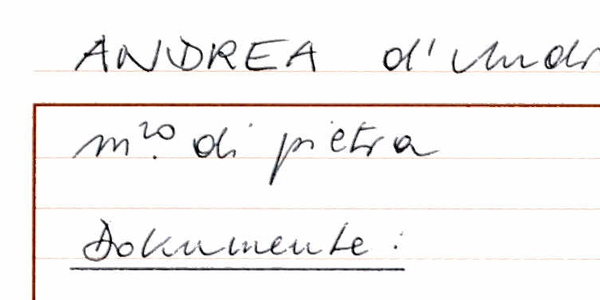 ANDREA d'Andr
m.ro di pietra
Dokumente: